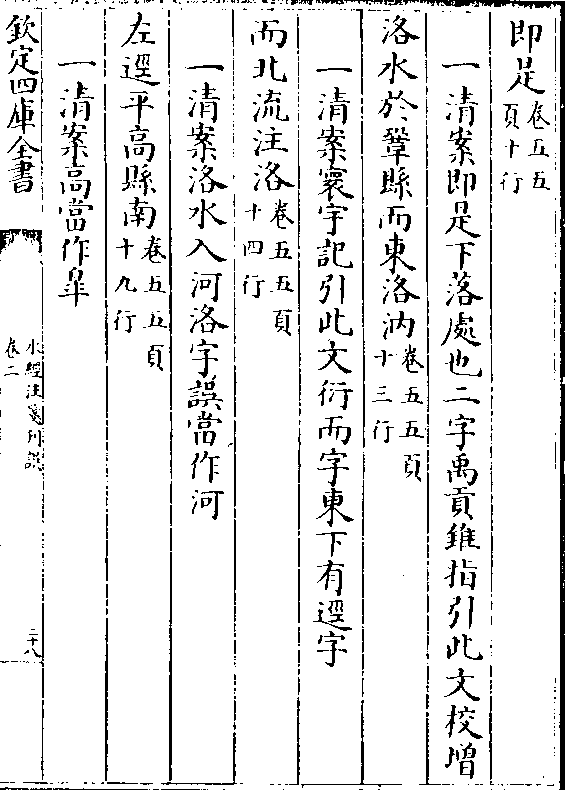 即是卷五五頁十行
一清案即是下落處也二字禹貢錐指引此文校增
洛水於鞏縣而東洛汭卷五五頁十三行
一清案寰宇記引此文衍而字東下有逕字
而北流注洛卷五五頁十四行
一清案洛水入河洛字誤當作河
左逕平高縣南卷五五頁十九行
一清案高當作皋
欽定四庫全書
水經注箋刋誤
卷二
二十八